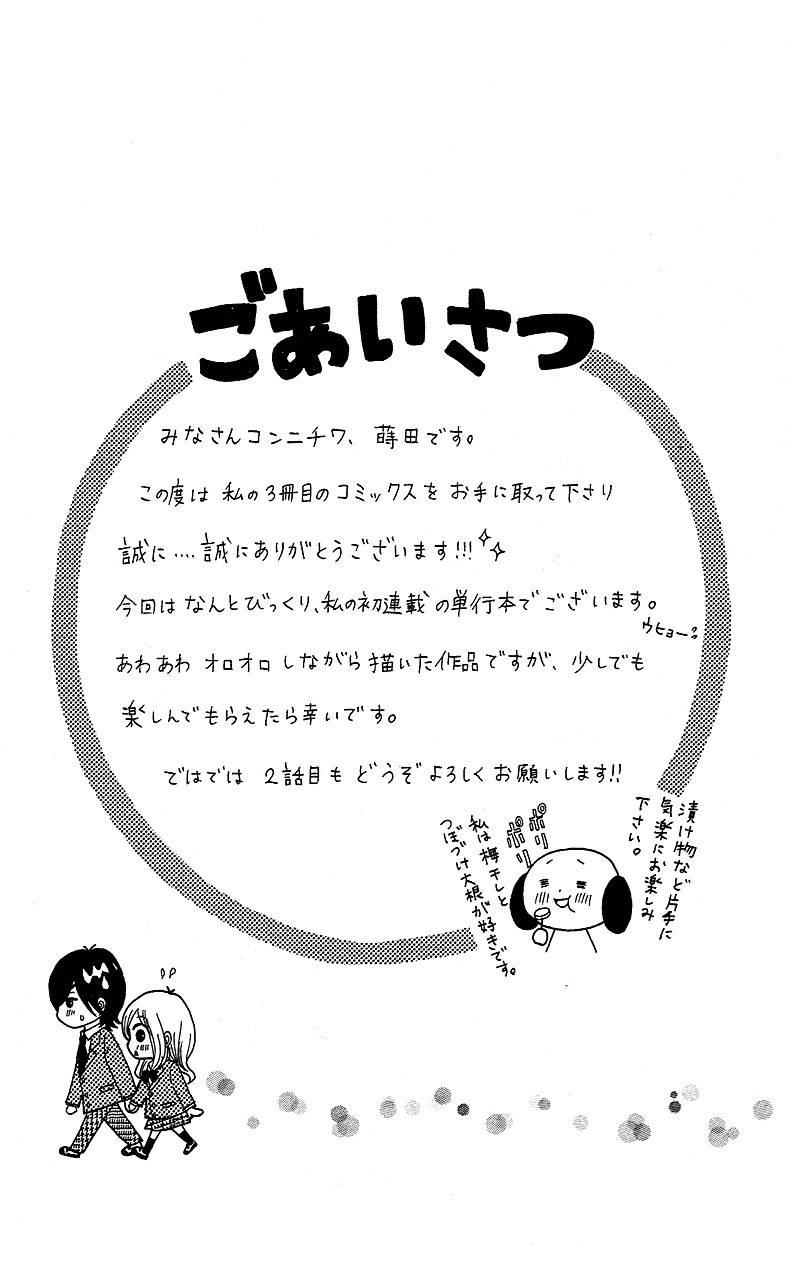 ごあいさつ
みなさんコンニチワ、蒔田です。
この度は 私の3冊目のコミックスを お手に取って下さり
誠に....誠にありがとうございます!!!
今回は なんとびっくり、私の初連載の単行本でございます。
ウヒョー
あわあわ オロオロ しながら描いた作品ですが、少しでも
楽しんでもらえたら幸いです。
ではでは 2話目も どうぞよろしくお願いします!!
漬け物など片手に
気楽にお楽しみ
下さい。
ポリ
ポリ
私は梅干しと
つぼづけ大根が好きです。